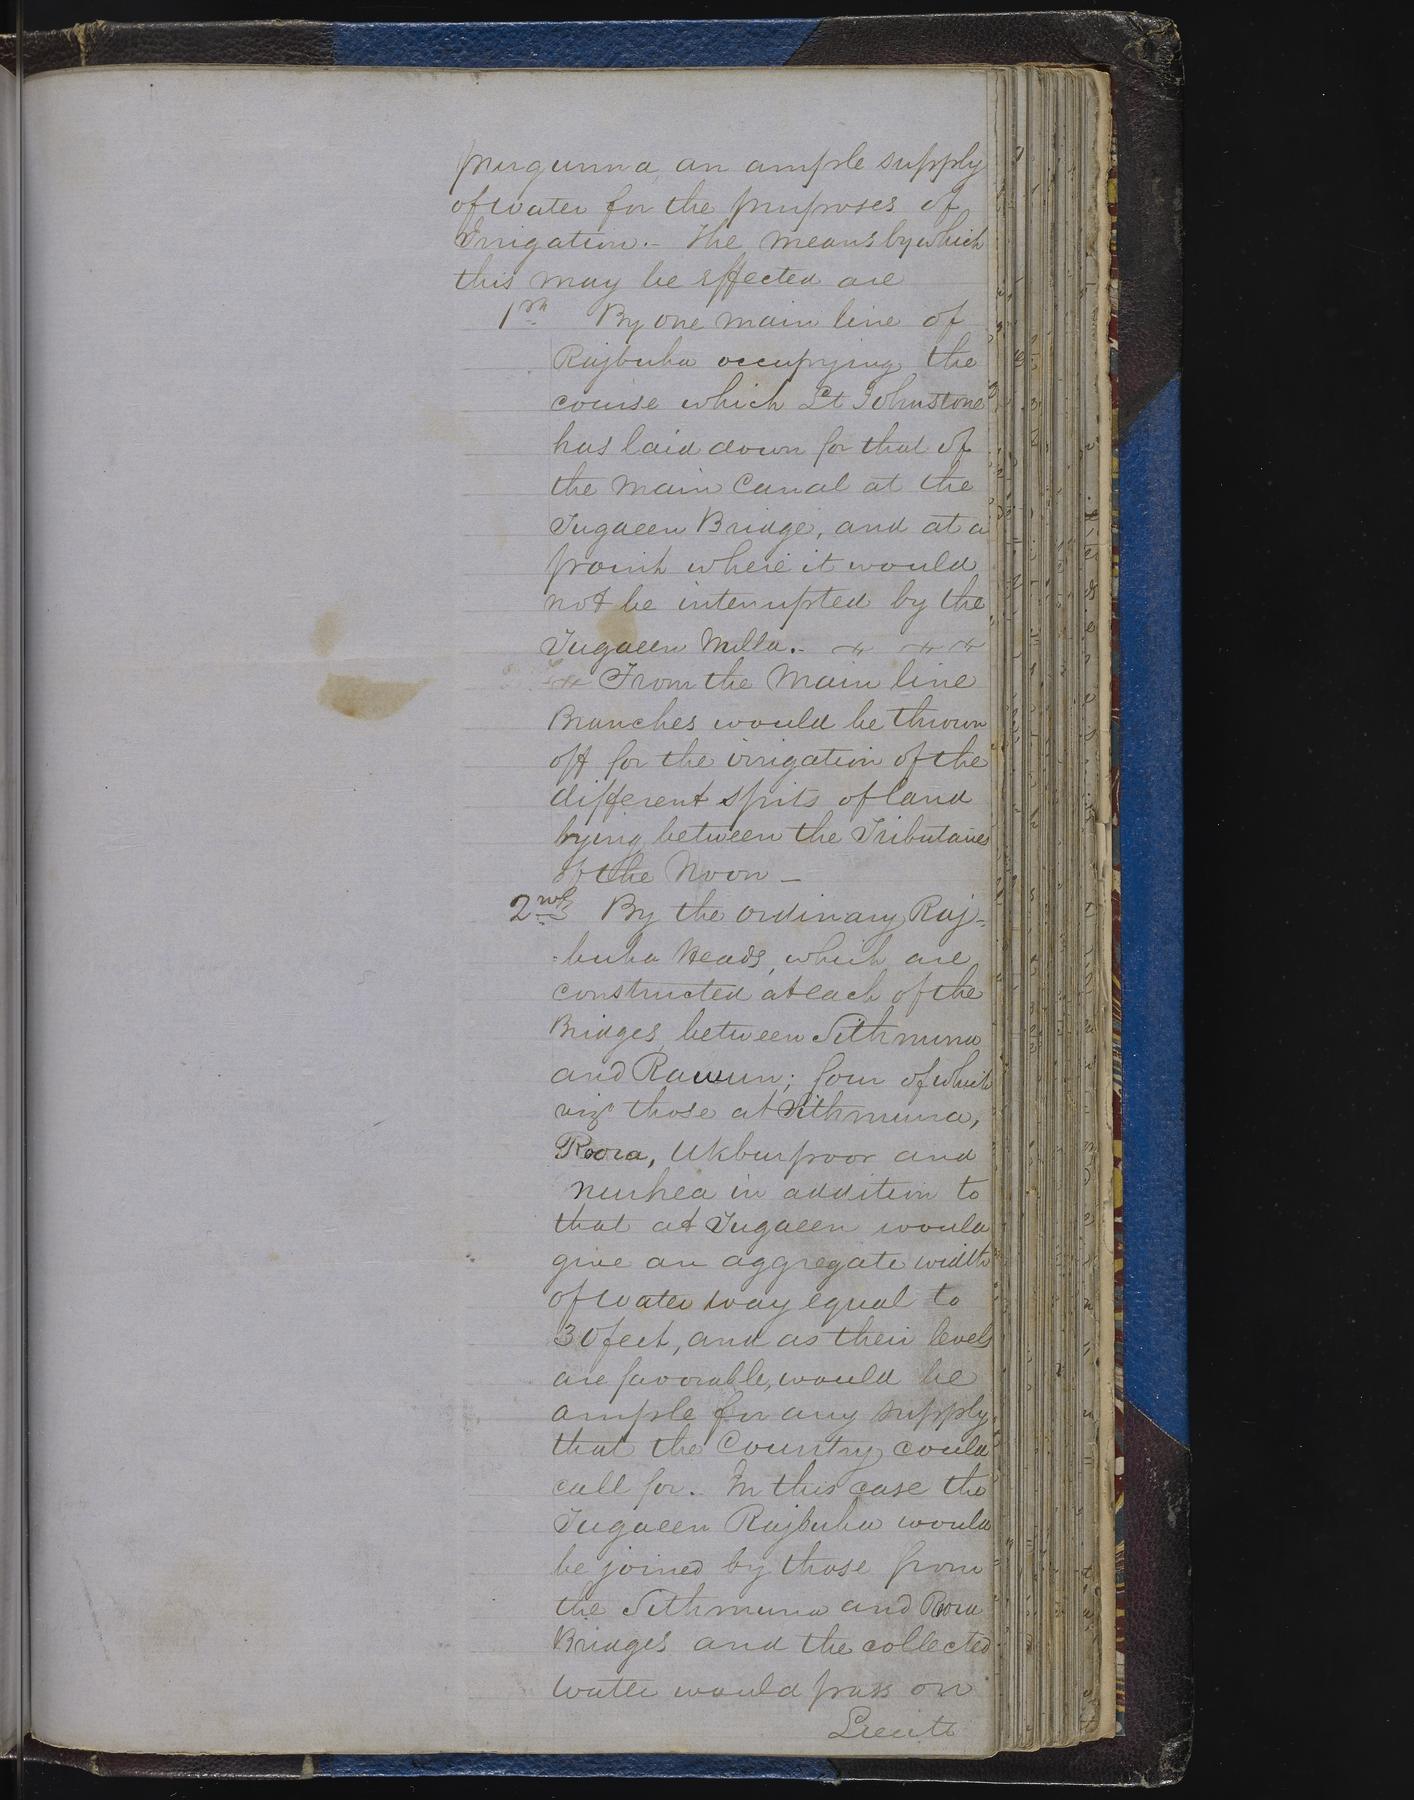 purgunna, an ample supply
of water for the purposes of
Irrigation.- The means by which
this may be effected are
1st By one main line of
Rajbuha occupying the
course which Lt Johnstone
has laid down for that of
the Main Canal at the
Jugaeen Bridge, and at a
point where it would
not be interrupted by the
Jugaeen Nulla.-
From the Main line
Branches would be thrown
off for the irrigation of the
different spits of land
lying between the Tributaries
of the Noon -
2nd By the ordinary Raj-
-buha Heads, which are
constructed at each of the
Bridges between Sithmura
and Rawun; four of which
viz those at Sithmura,
Roora, Ukburpoor and
Nurhea in addition to
that at Jugaeen would
give an aggregate width
of water way equal to
30 feet, and as their levels
are favorable, would be
ample for any supply
that the Country could
call for. In this case the
Jugaeen Rajbuha would
be joined by those from
the Sithmura and Roora
Bridges and the collected
water would pass on
Lieutt